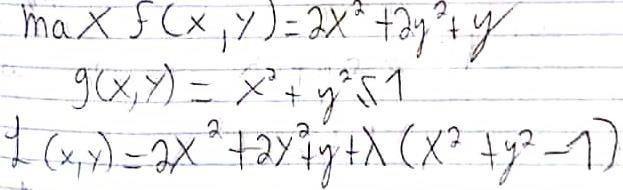 max f(x,y)=2x²+2y²+y
g(x,y)= x²+y²≤1
L(x,y)=2x²+2y²+y+λ(x²+y²-1)